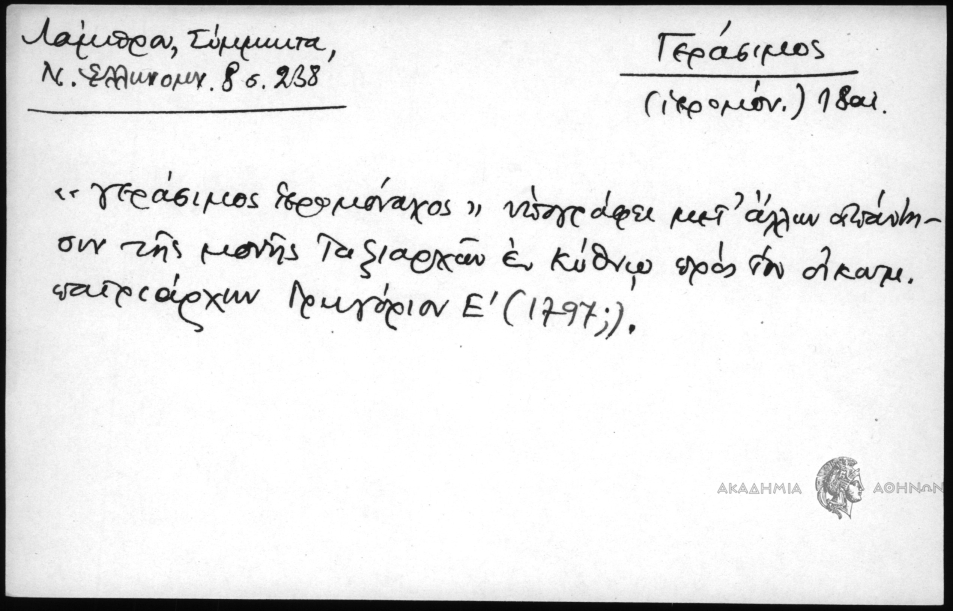 Λάμπρου, Σύμμικτα,
Ν. Ἑλληνομν. 8 σ. 238
Γεράσιμος
(ἱερομόν.) 18 αι.
«γεράσιμος ἱερομόναχος» ὑπογράφει μετ' ἄλλων ἀπάντη-
σιν τῆς μονῆς Ταξιαρχῶν ἐν Κύθνῳ πρός τόν οἰκουμ.
πατριάρχην Γρηγόριον Ε' (1797;).
ΑΚΑΔΗΜΙΑ ΑΘΗΝΩΝ